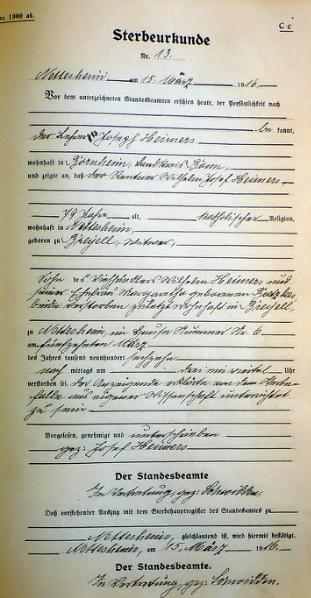 1900 ab.
C c
Sterbeurkunde
Nr. 13.
Nettersheim am 15. März 1916.
Vor dem unterzeichneten Standesbeamten erschien heute, der Persönlichkeit nach
be kannt,
der Lehrer Joseph Heimers
wohnhaft in Bornheim, Landkreis Bonn,
und zeigte an, daß der Rentner Wilhelm Josef Heimers
79 Jahre alt, katholischer Religion,
wohnhaft in Nettersheim,
geboren zu
Sohn des Wilhelm Heimers und
seiner Ehefrau Margaretha geborenen
beide verstorben zuletzt wohnhaft in
zu Nettersheim im Hause Nummer 6
am fünfzehnten März
des Jahres tausend neunhundert sechzehn
nach mittags um drei viertel Uhr
verstorben sei. Der Anzeigende erklärte von dem Sterbe-
falle aus eigener Wissenschaft unterrichtet
zu sein.
Vorgelesen, genehmigt und unterschrieben
gez: Josef Heimers
Der Standesbeamte
In Vertretung, gez:
Daß vorstehender Auszug mit dem Sterbehauptregister des Standesamtes zu
Nettersheim, gleichlautend ist, wird hiermit bestätigt.
Nettersheim, am 15. März 1916.
Der Standesbeamte.
In Vertretung, gez: